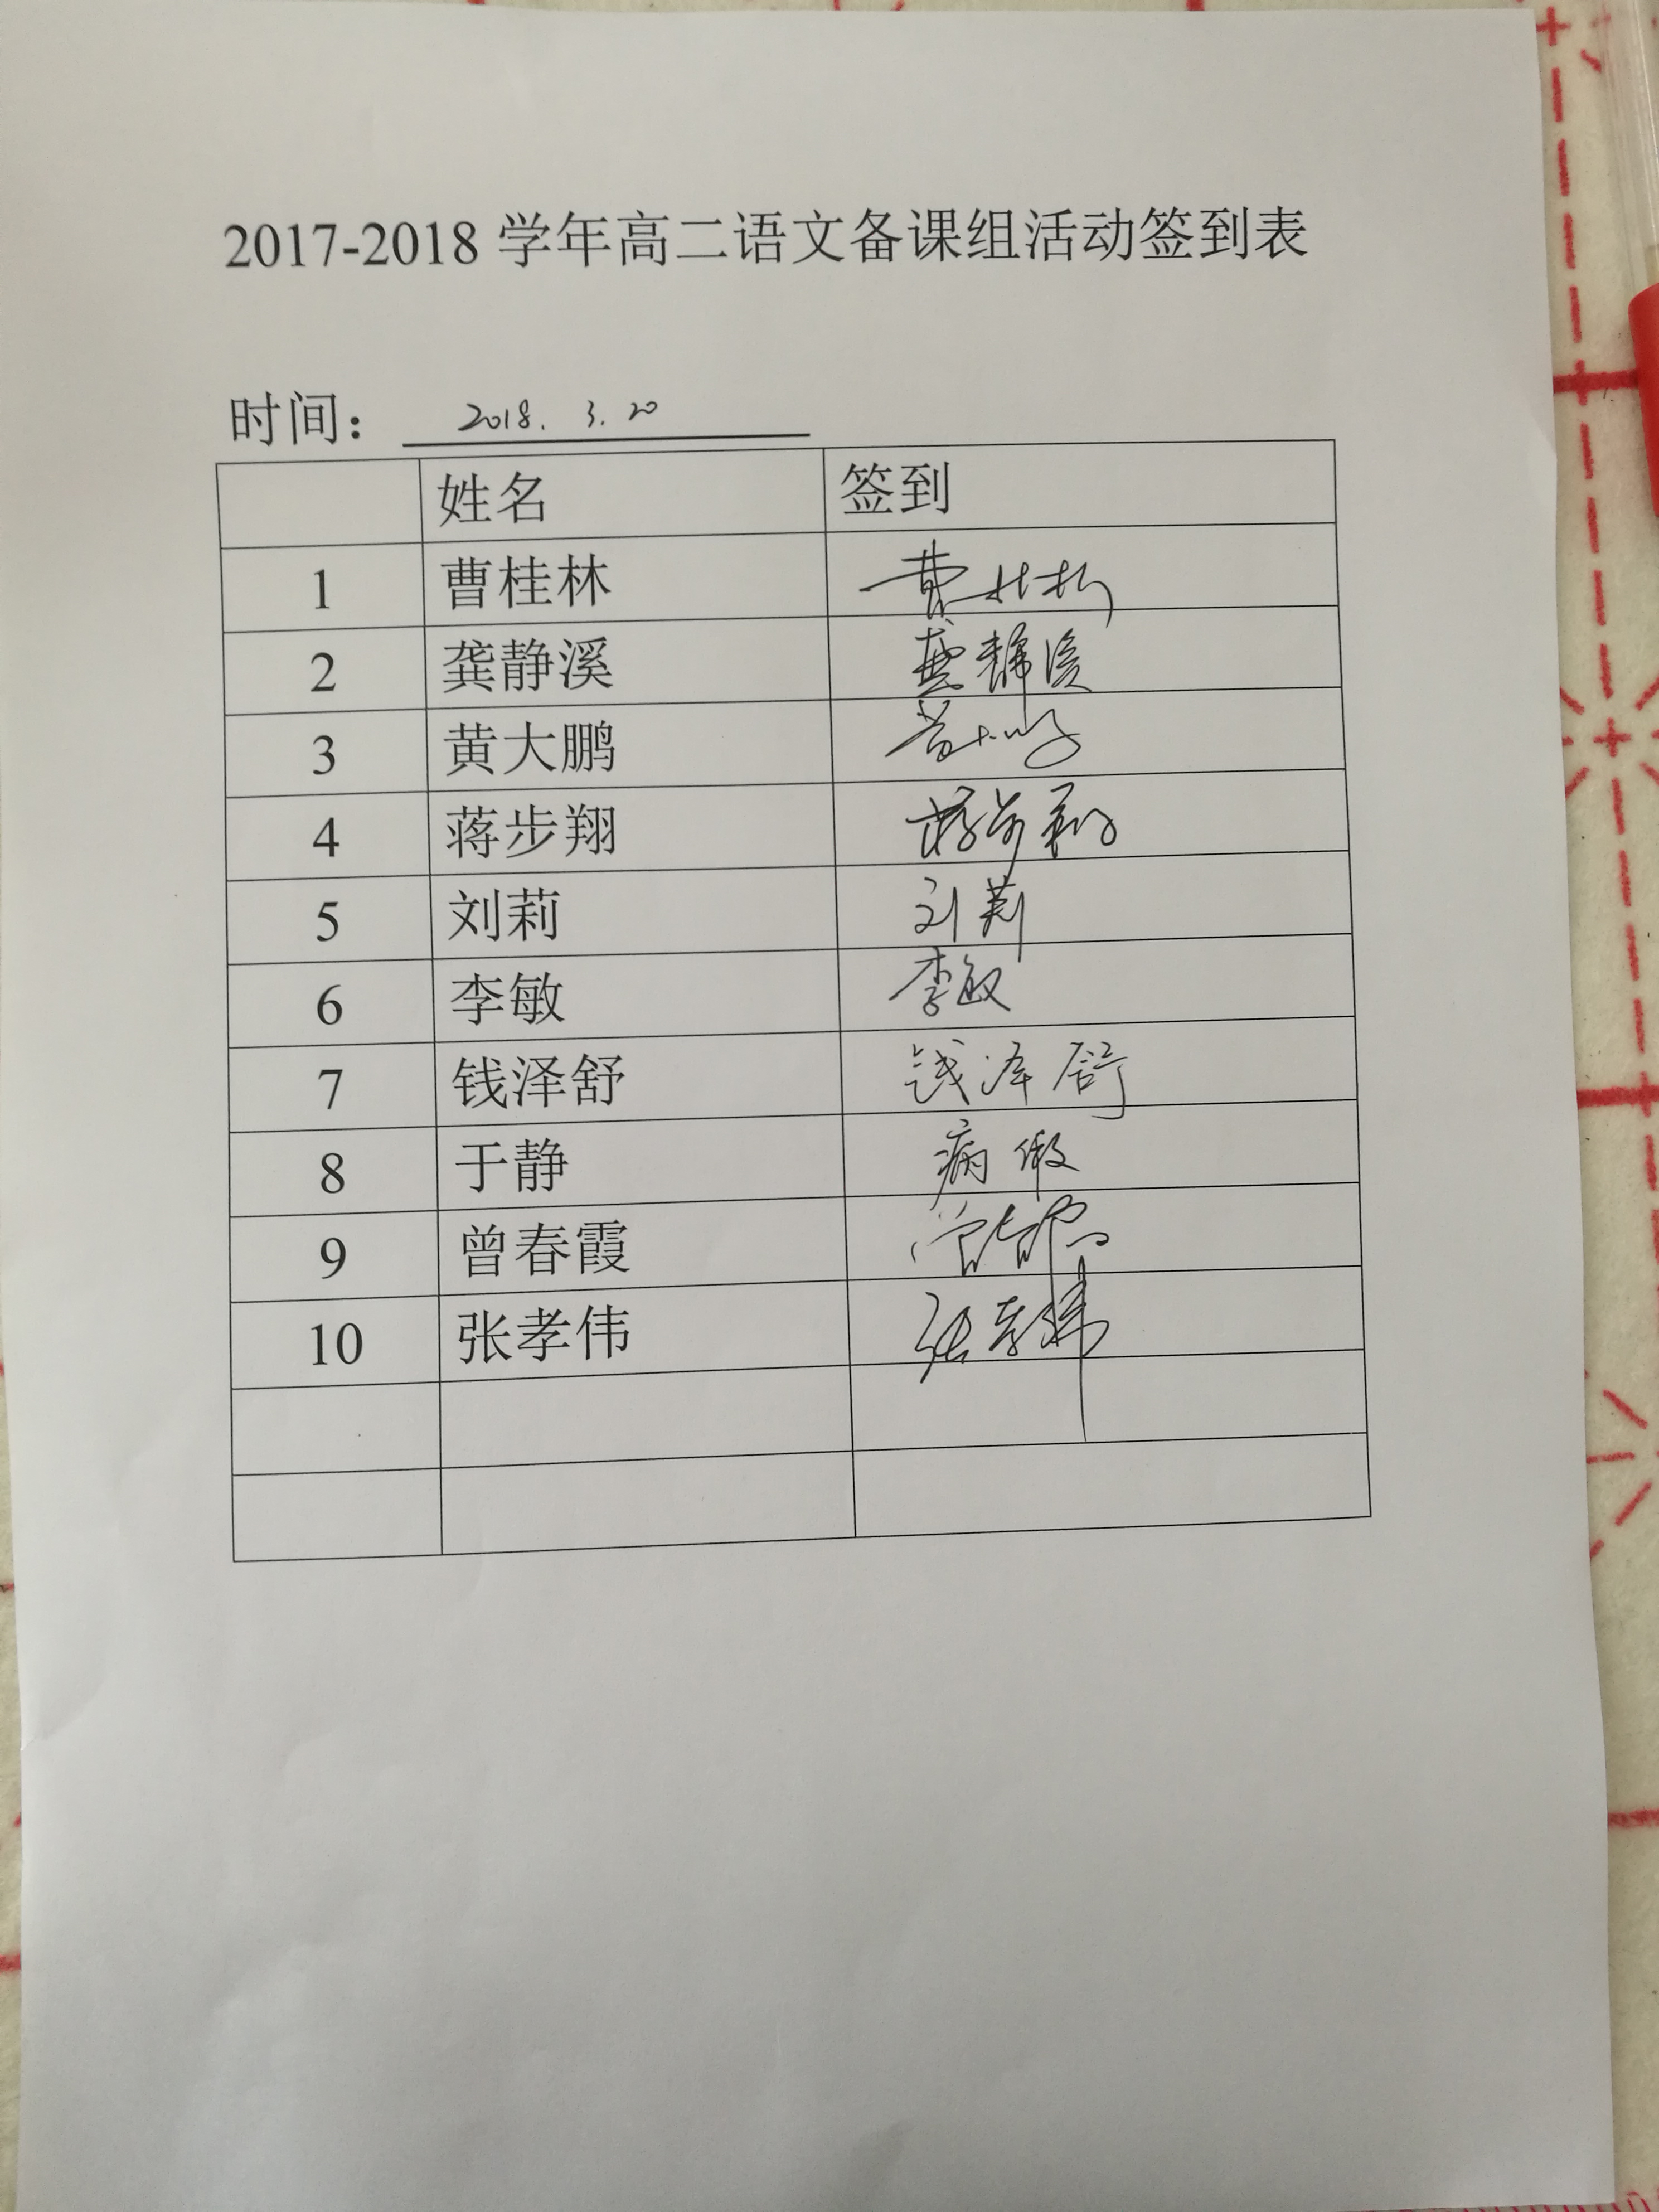 2017-2018 学年高二语文备课组活动签到表
时间： 2018. 3. 20
姓名 签到
1 曹桂林 曹桂林
2 龚静溪 龚静溪
3 黄大鹏 黄大鹏
4 蒋步翔 蒋步翔
5 刘莉 刘莉
6 李敏 李敏
7 钱泽舒 钱泽舒
8 于静 病假
9 曾春霞 曾春霞
10 张孝伟 张孝伟